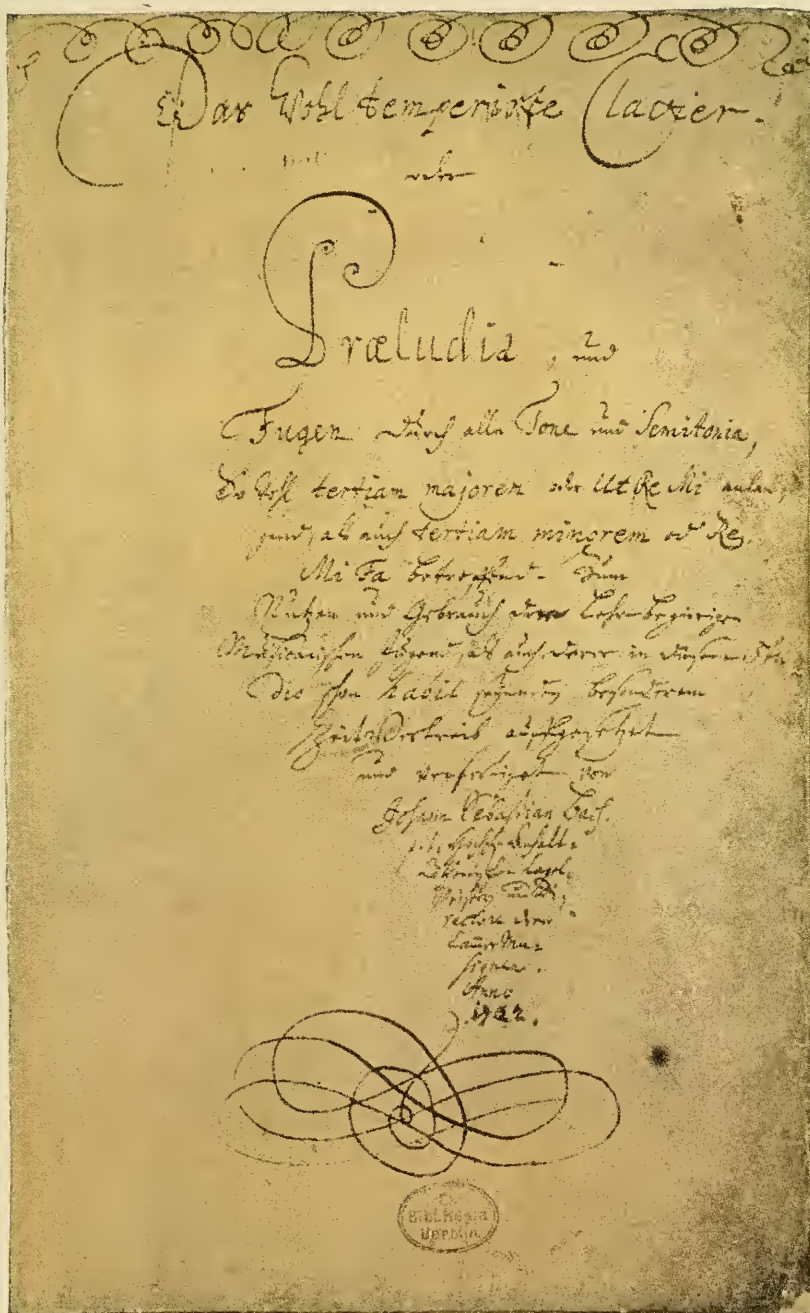 Das Wohltemperirte Clavier.
oder
Præludia, und
Fugen durch alle Tone und Semitonia,
So wohl tertiam majorem oder Ut Re Mi anlan-
gend, als auch tertiam minorem oder Re
Mi Fa betreffend. Zum
Nutzen und Gebrauch der Lehrbegierigen
Musicalischen Jugend, als auch derer in diesem stu-
dio schon habil seyenden besonderem
Zeitvertreib auffgesetzet
und verfertiget von
Johann Sebastian Bach.
p. t. Hochfürstl. Anhalt-
Cöthenischen Capel-
Meistern und Di-
rectore derer
Cammer Mu-
siquen.
Anno
1722.